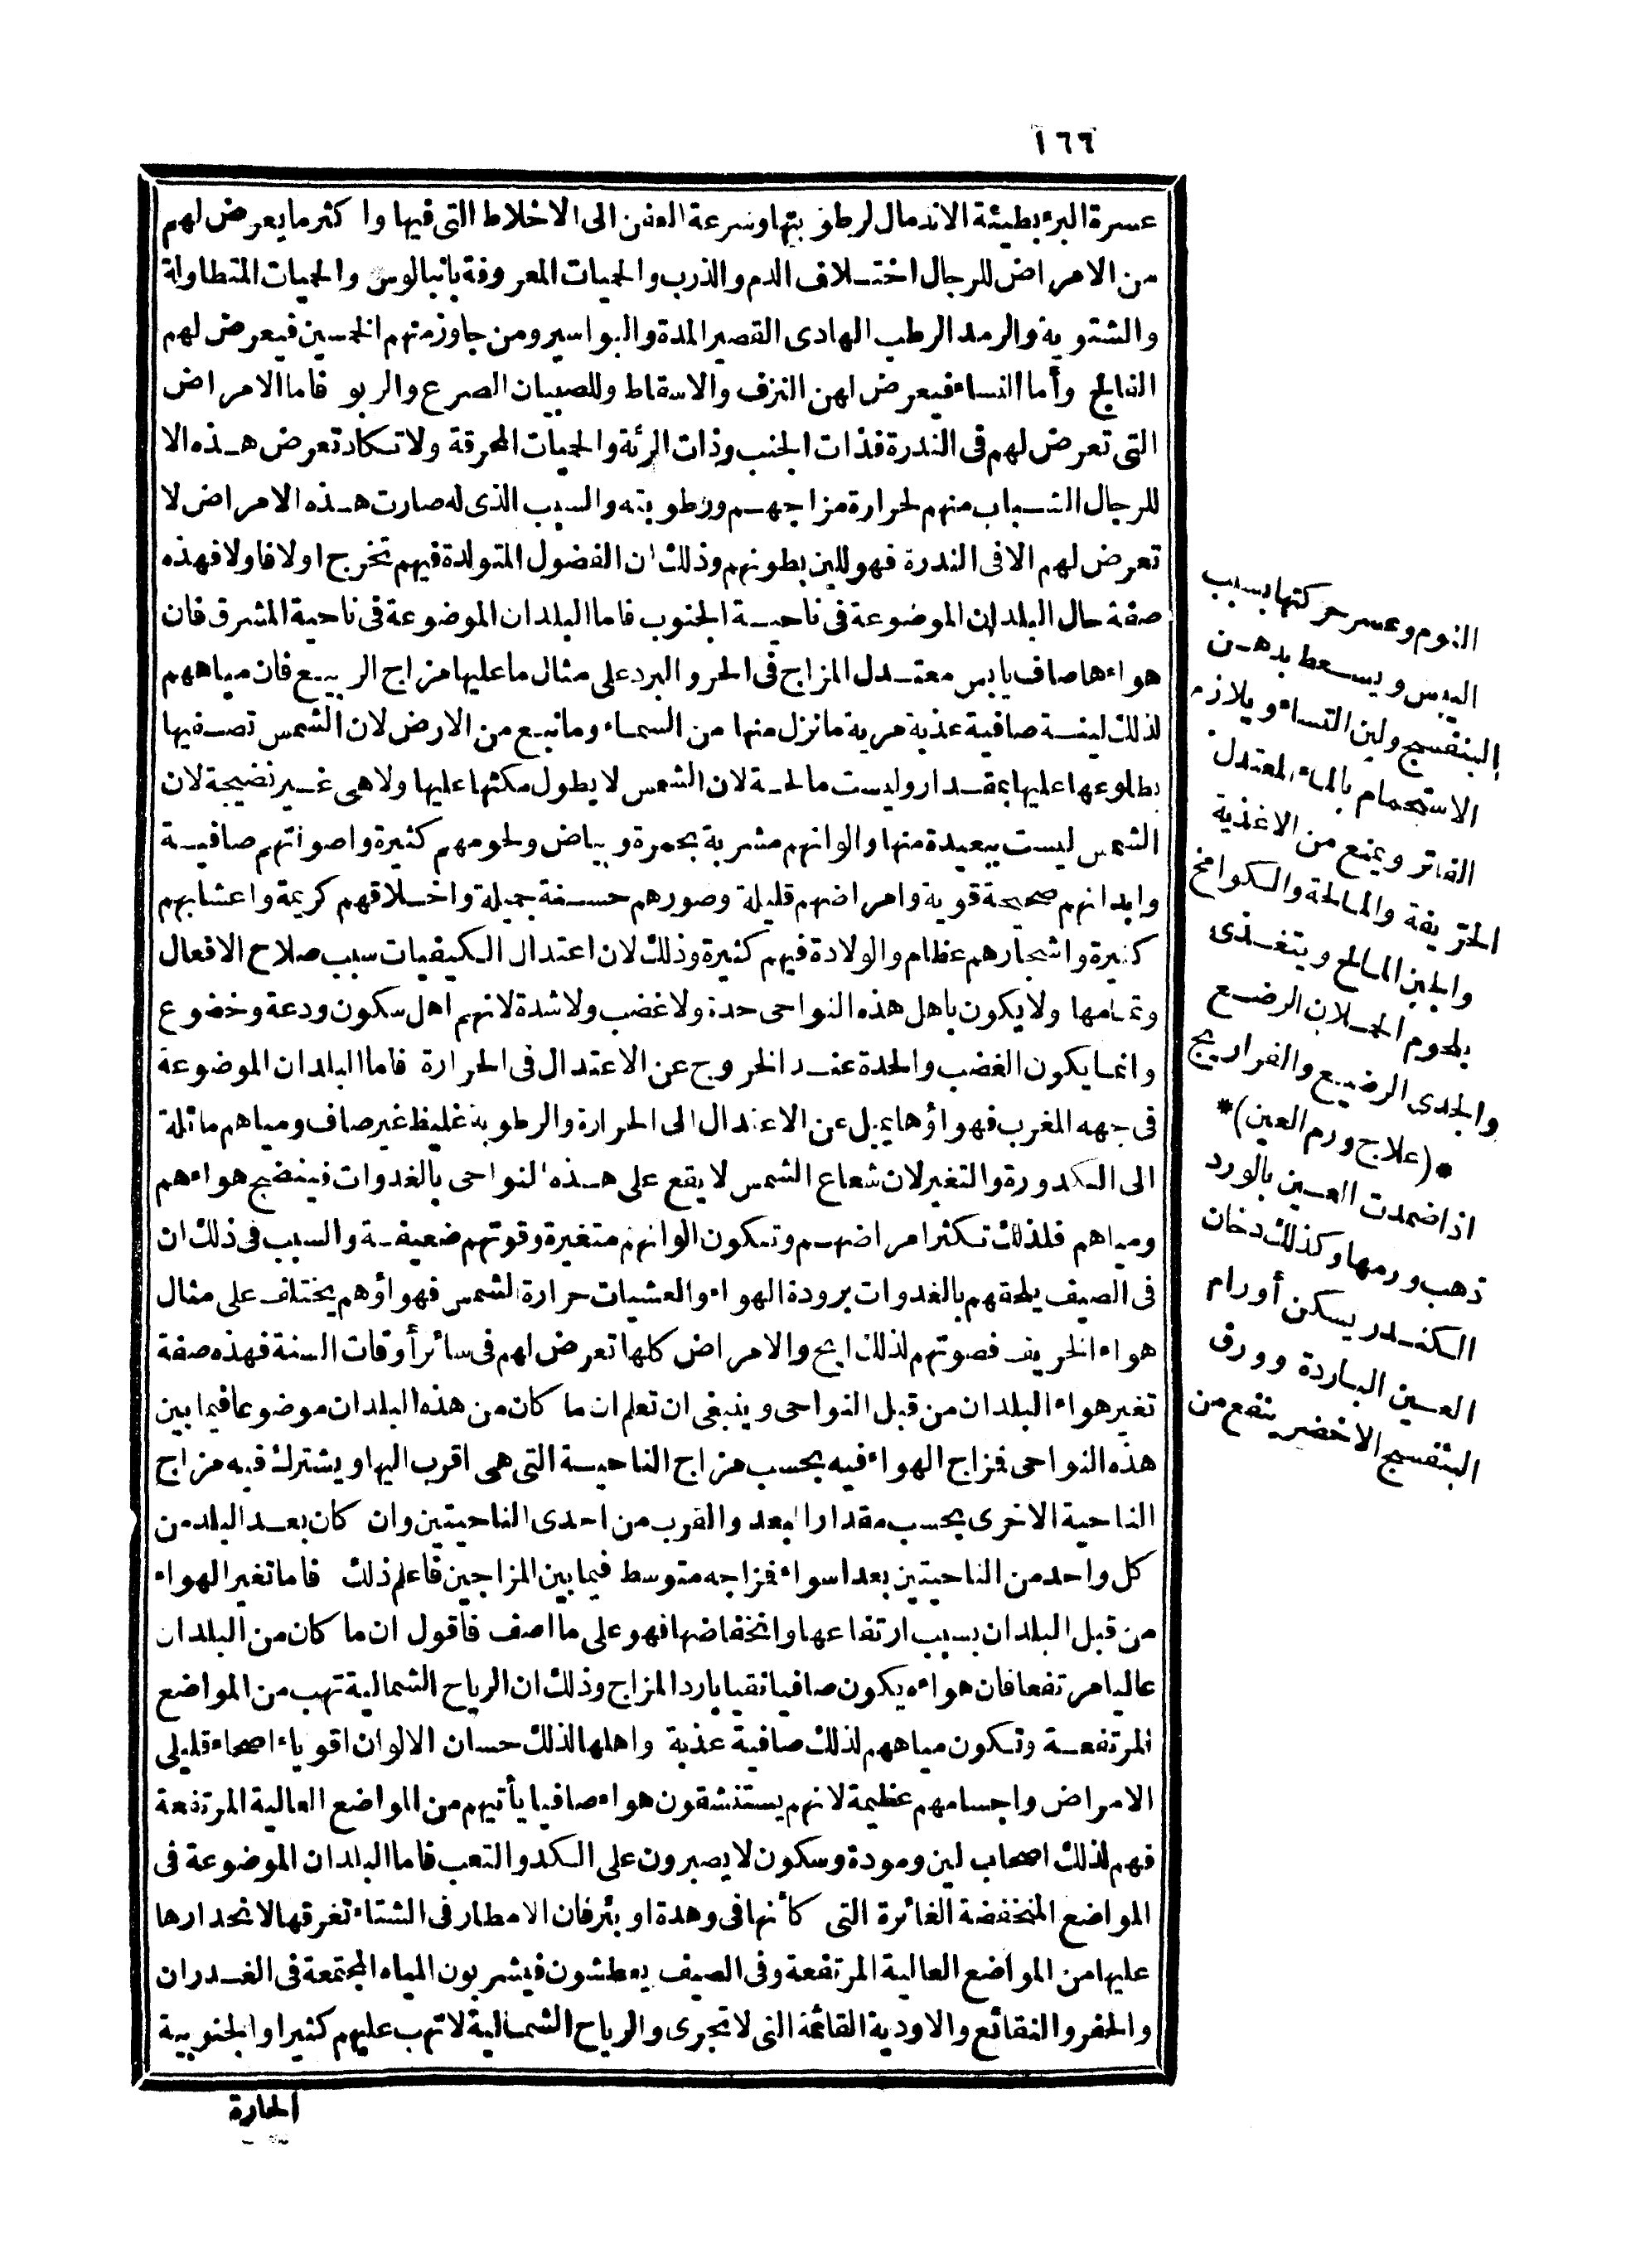 ١٦٦
عسرة البرء بطيئة الاندمال لرطوبتها وسرعة العفن الى الاخلاط التى فيها واكثر ما يعرض لهم
من الامراض للرجال اختلاف الدم والذرب والحميات المعروفة بانبالوس والحميات المتطاولة
والشتوية والرمد الرطب الهادى القصير المدة والبواسير ومن جاوز منهم الخمسين فيعرض لهم
الفالج وأما النساء فيعرض لهن النزف والاسقاط وللصبيان الصرع والربو فاما الامراض
التى تعرض لهم فى الندرة فذات الجنب وذات الرئة والحميات المحرقة ولا تكاد تعرض هذه الا
للرجال الشباب منهم لحرارة مزاجهم ورطوبته والسبب الذى له صارت هذه الامراض لا
تعرض لهم الا فى الندرة فهو للين بطونهم وذلك ان الفضول المتولدة فيهم تخرج اولا فاولا فهذه
صفة حال البلدان الموضوعة فى ناحية الجنوب فاما البلدان الموضوعة فى ناحية المشرق فان
هواءها صاف يابس معتدل المزاج فى الحر والبرد على مثال ما عليها مزاج الربيع فان مياههم
لذلك لينة صافية عذبة مرية ما نزل منها من السماء وما نبع من الارض لان الشمس تصفيها
بطلوعها عليها بمقدار وليست مالحة لان الشمس لا يطول مكثها عليها ولا هى غير نضيجة لان
الشمس ليست ببعيدة منها والوانهم مشربة بحمرة وبياض ولحومهم كثيرة واصواتهم صافية
وابدانهم صحيحة قوية وامراضهم قليلة وصورهم حسنة جميلة واخلاقهم كريمة واعشابهم
كثيرة واشجارهم عظام والولادة فيهم كثيرة وذلك لان اعتدال الكيفيات سبب صلاح الافعال
وتمامها ولا يكون باهل هذه النواحى حدة ولا غضب ولا شدة لانهم اهل سكون ودعة وخضوع
وانما يكون الغضب والحدة عند الخروج عن الاعتدال فى الحرارة فاما البلدان الموضوعة
فى جهه المغرب فهواؤها يميل عن الاعتدال الى الحرارة والرطوبة غليظ غير صاف ومياهم مائلة
الى الكدورة والتغير لان شعاع الشمس لا يقع على هذه النواحى بالغدوات فينضج هواءهم
ومياهم فلذلك تكثر امراضهم وتكون الوانهم متغيرة وقوتهم ضعيفة والسبب فى ذلك ان
فى الصيف يلحقهم بالغدوات برودة الهواء والعشيات حرارة الشمس فهواؤهم يختلف على مثال
هواء الخريف فصوتهم لذلك ابح والامراض كلها تعرض لهم فى سائر أوقات السنة فهذه صفة
تغير هواء البلدان من قبل النواحى وينبغى ان تعلم ان ما كان من هذه البلدان موضوعا فيما بين
هذه النواحى فمزاج الهواء فيه بحسب مزاج الناحية التى هى اقرب اليها ويشترك فيه مزاج
الناحية الاخرى بحسب مقدار البعد والقرب من احدى الناحيتين وان كان بعد البلد من
كل واحد من الناحيتين بعدا سواء فمزاجه متوسط فيما بين المزاجين فاعلم ذلك فاما تغير الهواء
من قبل البلدان بسبب ارتفاعها وانخفاضها فهو على ما اصف فاقول ان ما كان من البلدان
عاليا مرتفعا فان هواءه يكون صافيا نقيا بارد المزاج وذلك ان الرياح الشمالية تهب من المواضع
المرتفعة وتكون مياههم لذلك صافية عذبة واهلها لذلك حسان الالوان اقوياء اصحاء قليلى
الامراض واجسامهم عظيمة لانهم يستنشقون هواء صافيا يأتيهم من المواضع العالية المرتفعة
فهم لذلك اصحاب لين ومودة وسكون لا يصبرون على الكد والتعب فاما البلدان الموضوعة فى
المواضع المنخفضة الغائرة التى كأنها فى وهدة او بئر فان الامطار فى الشتاء تغرقها لانحدارها
عليها من المواضع العالية المرتفعة وفى الصيف يعطشون فيشربون المياه المجتمعة فى الغدران
والحفر والنقائع والاودية القائمة التى لا تجرى والرياح الشمالية لا تهب عليهم كثيرا والجنوبية
الحارة
النوم وعسر حركتها بسبب
اليبس ويسعط بدهن
البنفسج ولبن النساء ويلازم
الاستحمام بالماء المعتدل
الفاتر ويمنع من الاغذية
الحريفة والمالحة والكوامخ
والجبن المالح ويتغذى
بلحوم الحملان الرضع
والجدى الرضيع والفراريج
*(علاج ورم العين)*
اذا ضمدت العين بالورد
ذهب ورمها وكذلك دخان
الكندر يسكن أورام
العين الباردة وورق
البنفسج الاخضر ينفع من